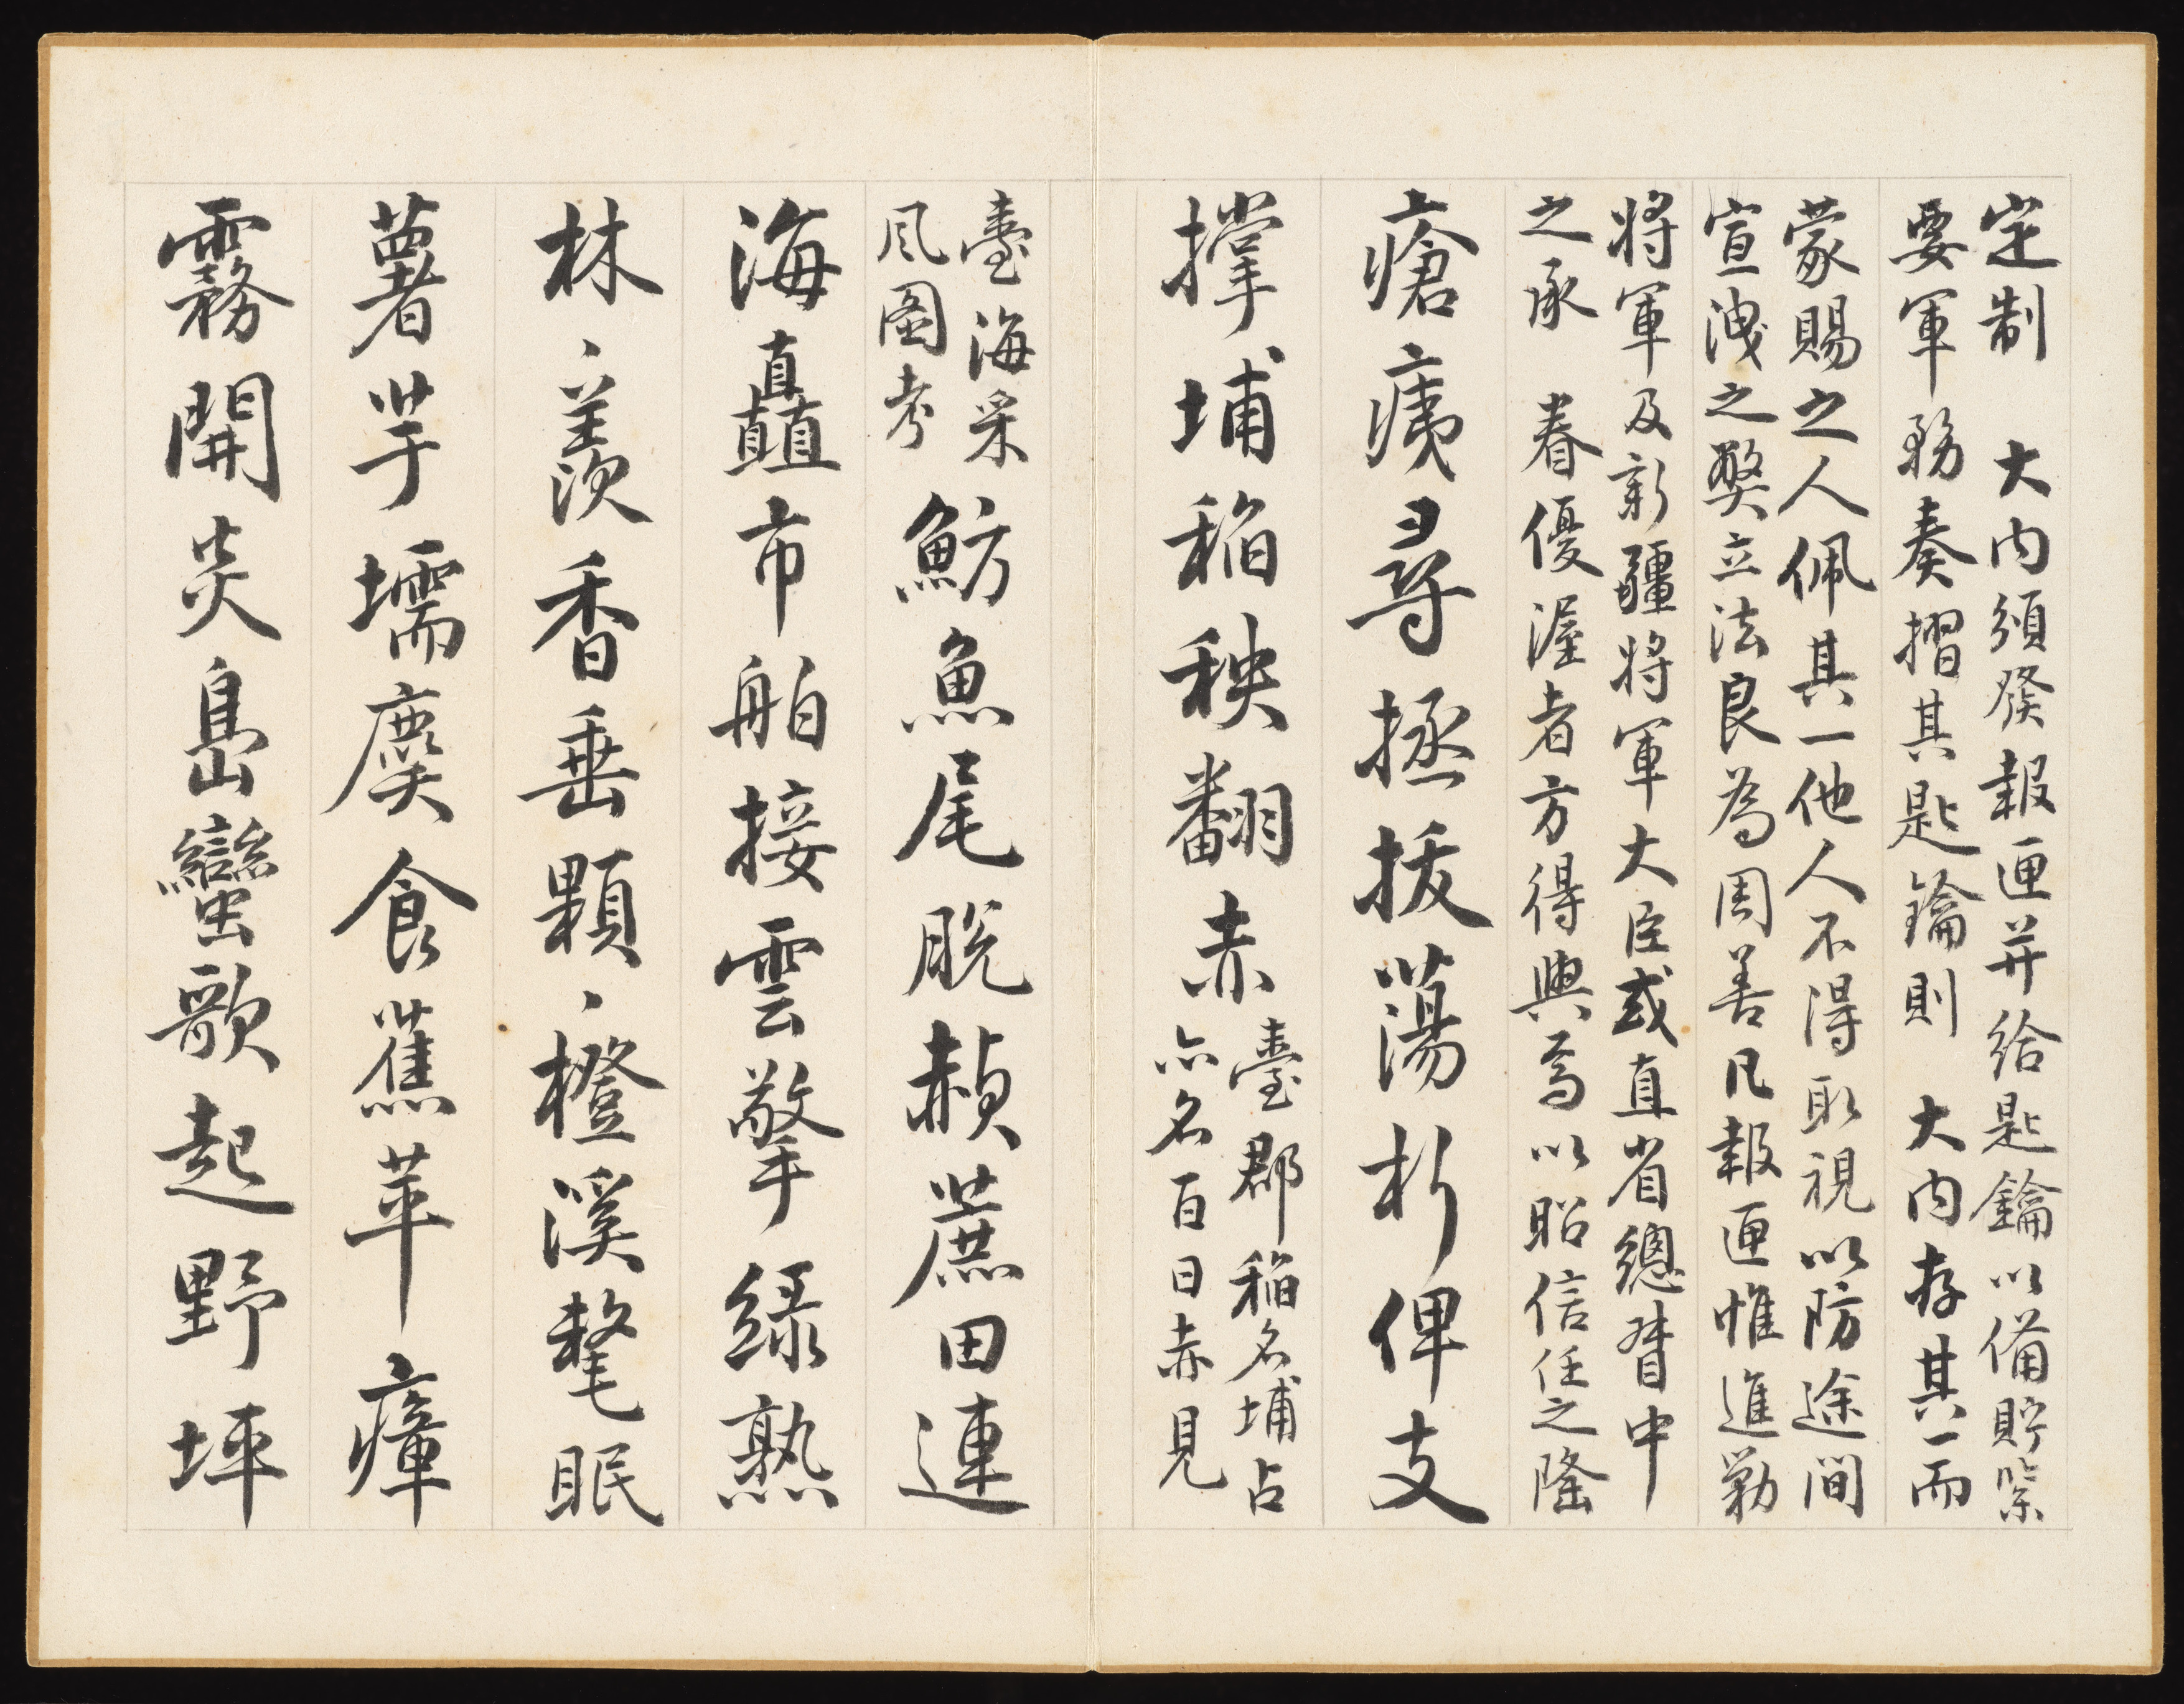 定制　大內頒發報匣并給匙鑰以備貯緊
要軍務奏摺其匙鑰則　大內存其一而
蒙賜之人佩其一他人不得取視以防途間
宣洩之弊立法良為周善凡報匣惟進勦
將軍及新疆將軍大臣或直省總督中
之承　眷優渥者方得與焉以昭信任之隆
瘡痍尋拯拔蕩析俾支
撑埔稻秧翻赤
臺郡稲名埔占
亦名百日赤見
臺海采
风图考
魴魚尾脫赬蔗田連
海矗市舶接雲擎綠熟
林、羨香垂顆、橙溪氂眠
薯芋壖麌食蕉苹瘴
霧開炎島蠻歌起野坪